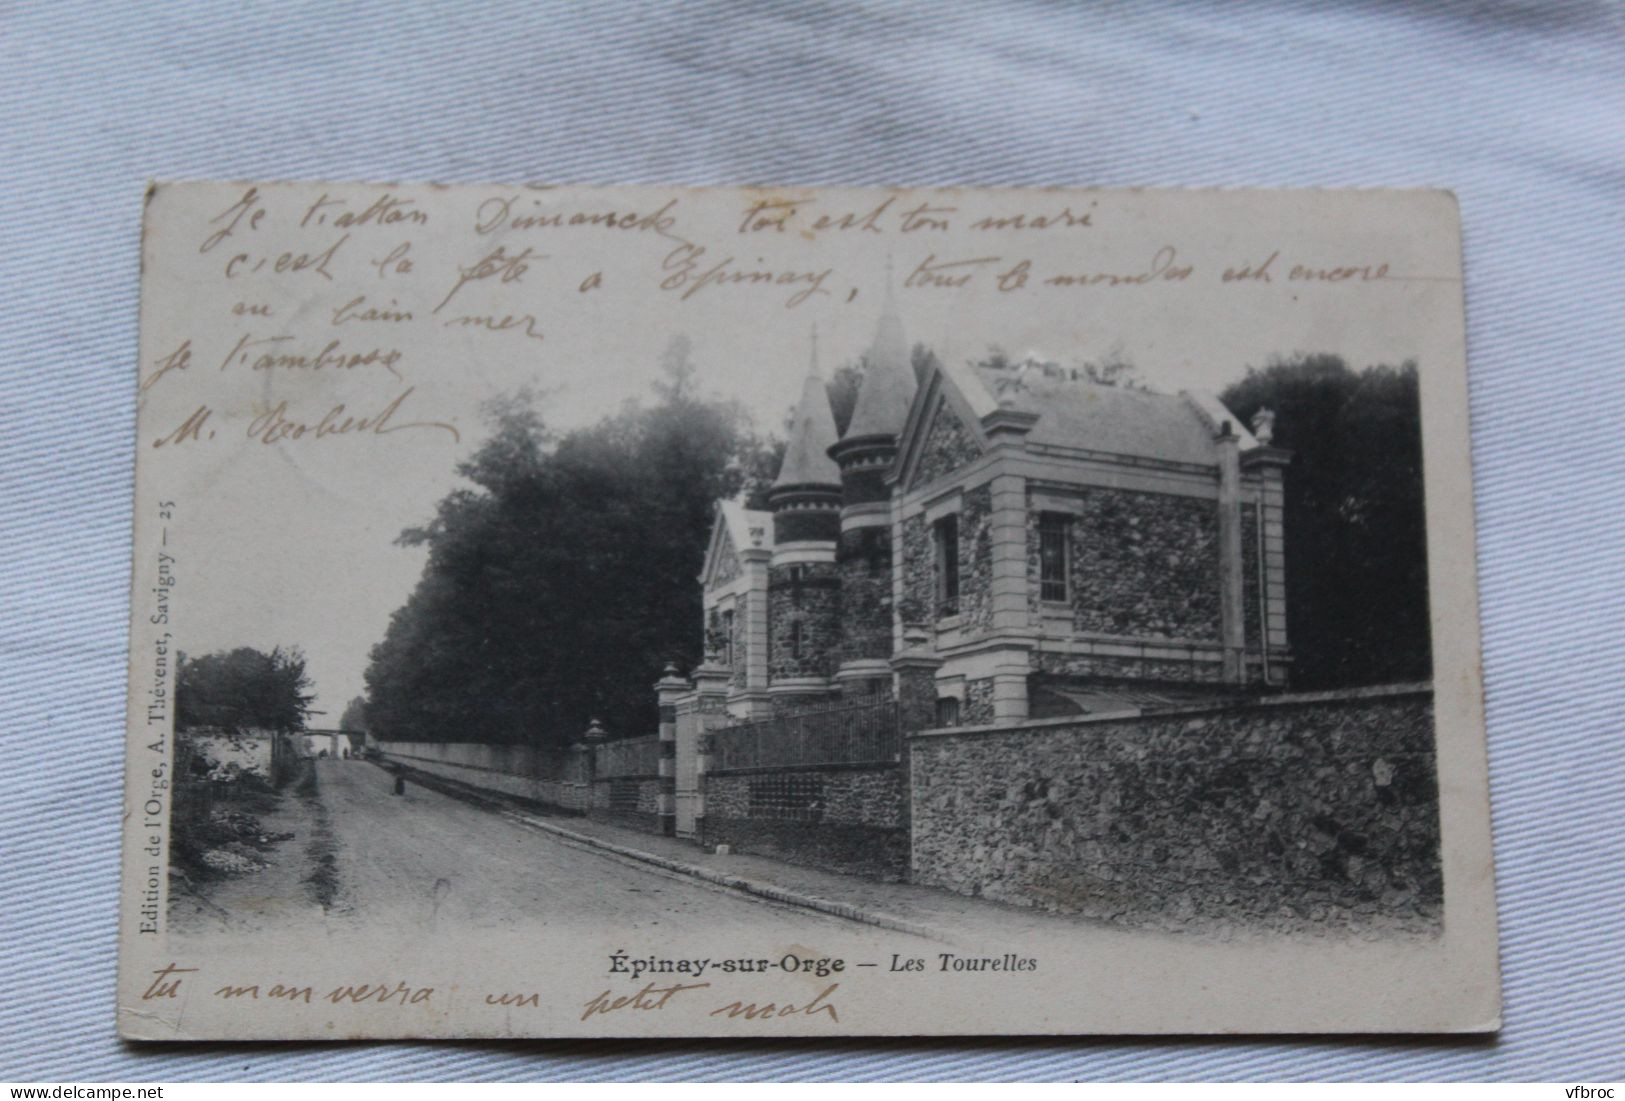 Je t'attan Dimanck toi est ton mari
c'est la fête a Epinay, tous le mondes est encore
au bain mer
Je t'ambrasse
M. Robert
Edition de l'Orge, A. Thévenet, Savigny — 25
Épinay-sur-Orge — Les Tourelles
tu manverra un petit moh
vfbroc